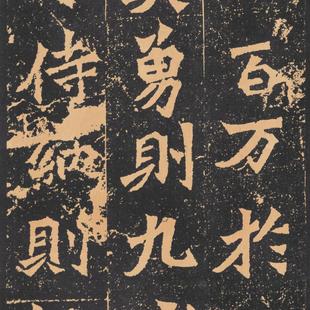 百万於
勇則九
侍納則